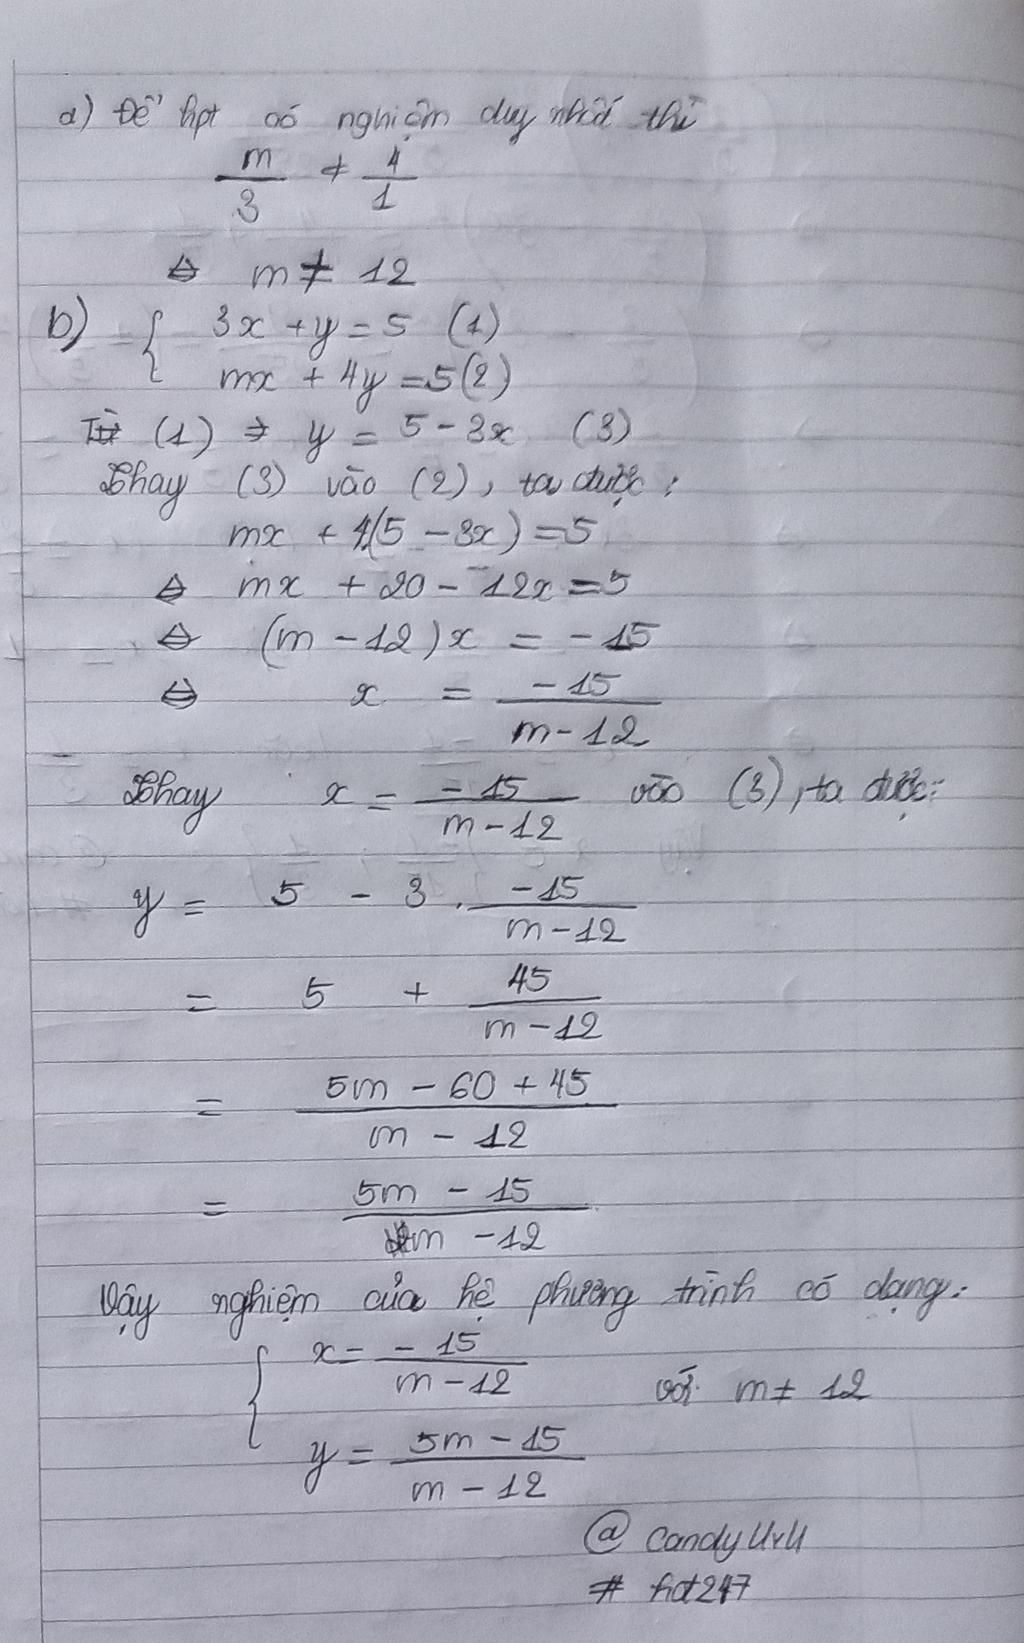 a) Để hpt có nghiệm duy nhất thì
m/3 ≠ 4/1
⇔ m ≠ 12
b) { 3x + y = 5 (1)
mx + 4y = 5 (2)
Từ (1) ⇒ y = 5 - 3x (3)
Thay (3) vào (2), ta được:
mx + 4(5 - 3x) = 5
⇔ mx + 20 - 12x = 5
⇔ (m - 12)x = -15
⇔ x = -15/(m - 12)
Thay x = -15/(m - 12) vào (3), ta được:
y = 5 - 3 . -15/(m - 12)
= 5 + 45/(m - 12)
= (5m - 60 + 45)/(m - 12)
= (5m - 15)/(m - 12)
Vậy nghiệm của hệ phương trình có dạng:
{ x = -15/(m - 12) với m ≠ 12
y = (5m - 15)/(m - 12)
@ Candy UvU
# hdt247